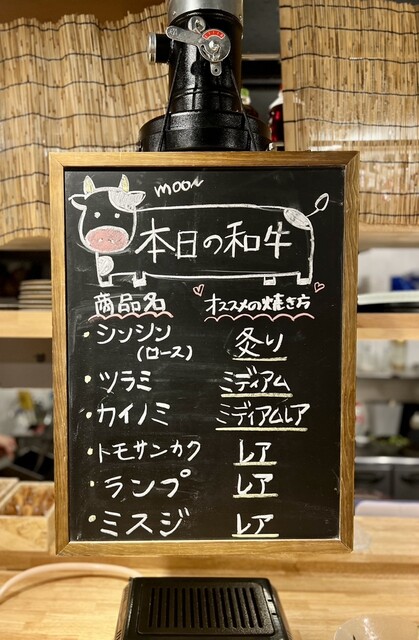 moo~
本日の和牛
商品名 オススメの焼き方
・シンシン 炙り
(ロース)
・ツラミ ミディアム
・カイノミ ミディアムレア
・トモサンカク レア
・ランプ レア
・ミスジ レア